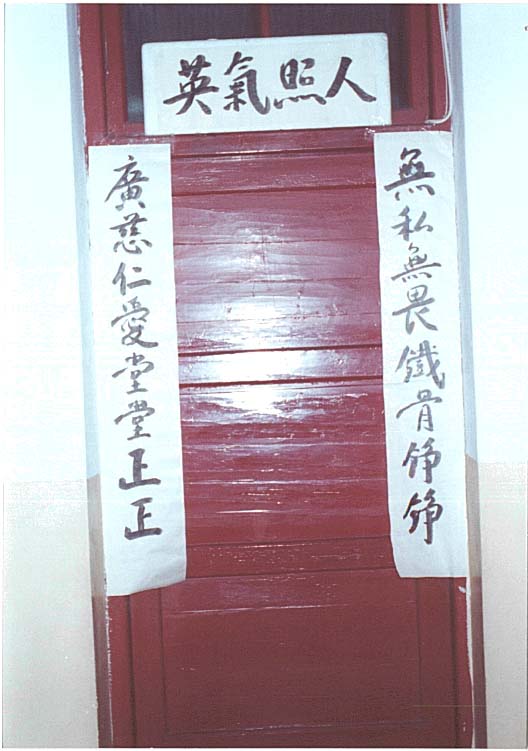 英氣照人
廣慈仁愛堂堂正正
無私無畏鐵骨錚錚